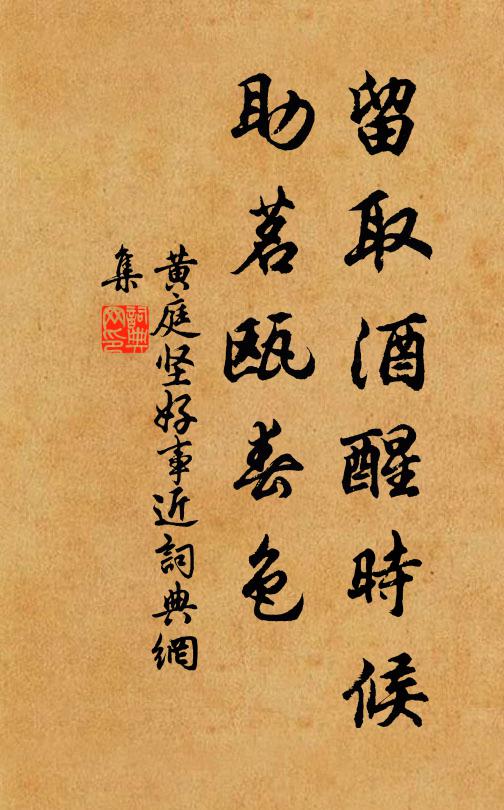 留取酒醒時候
助茗瓯春色
黄庭坚好事近詞典網
集
詞典
网印